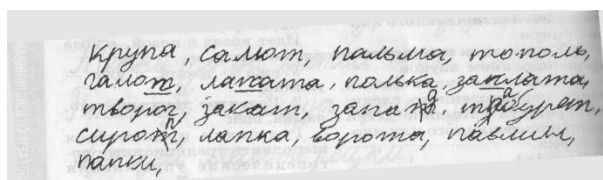 Крупа, салют, пальма, тополь,
галот, лапата, полька, заплата,
творог, закат, запад, табурет,
сироп, лапка, ворота, павлин,
папки,